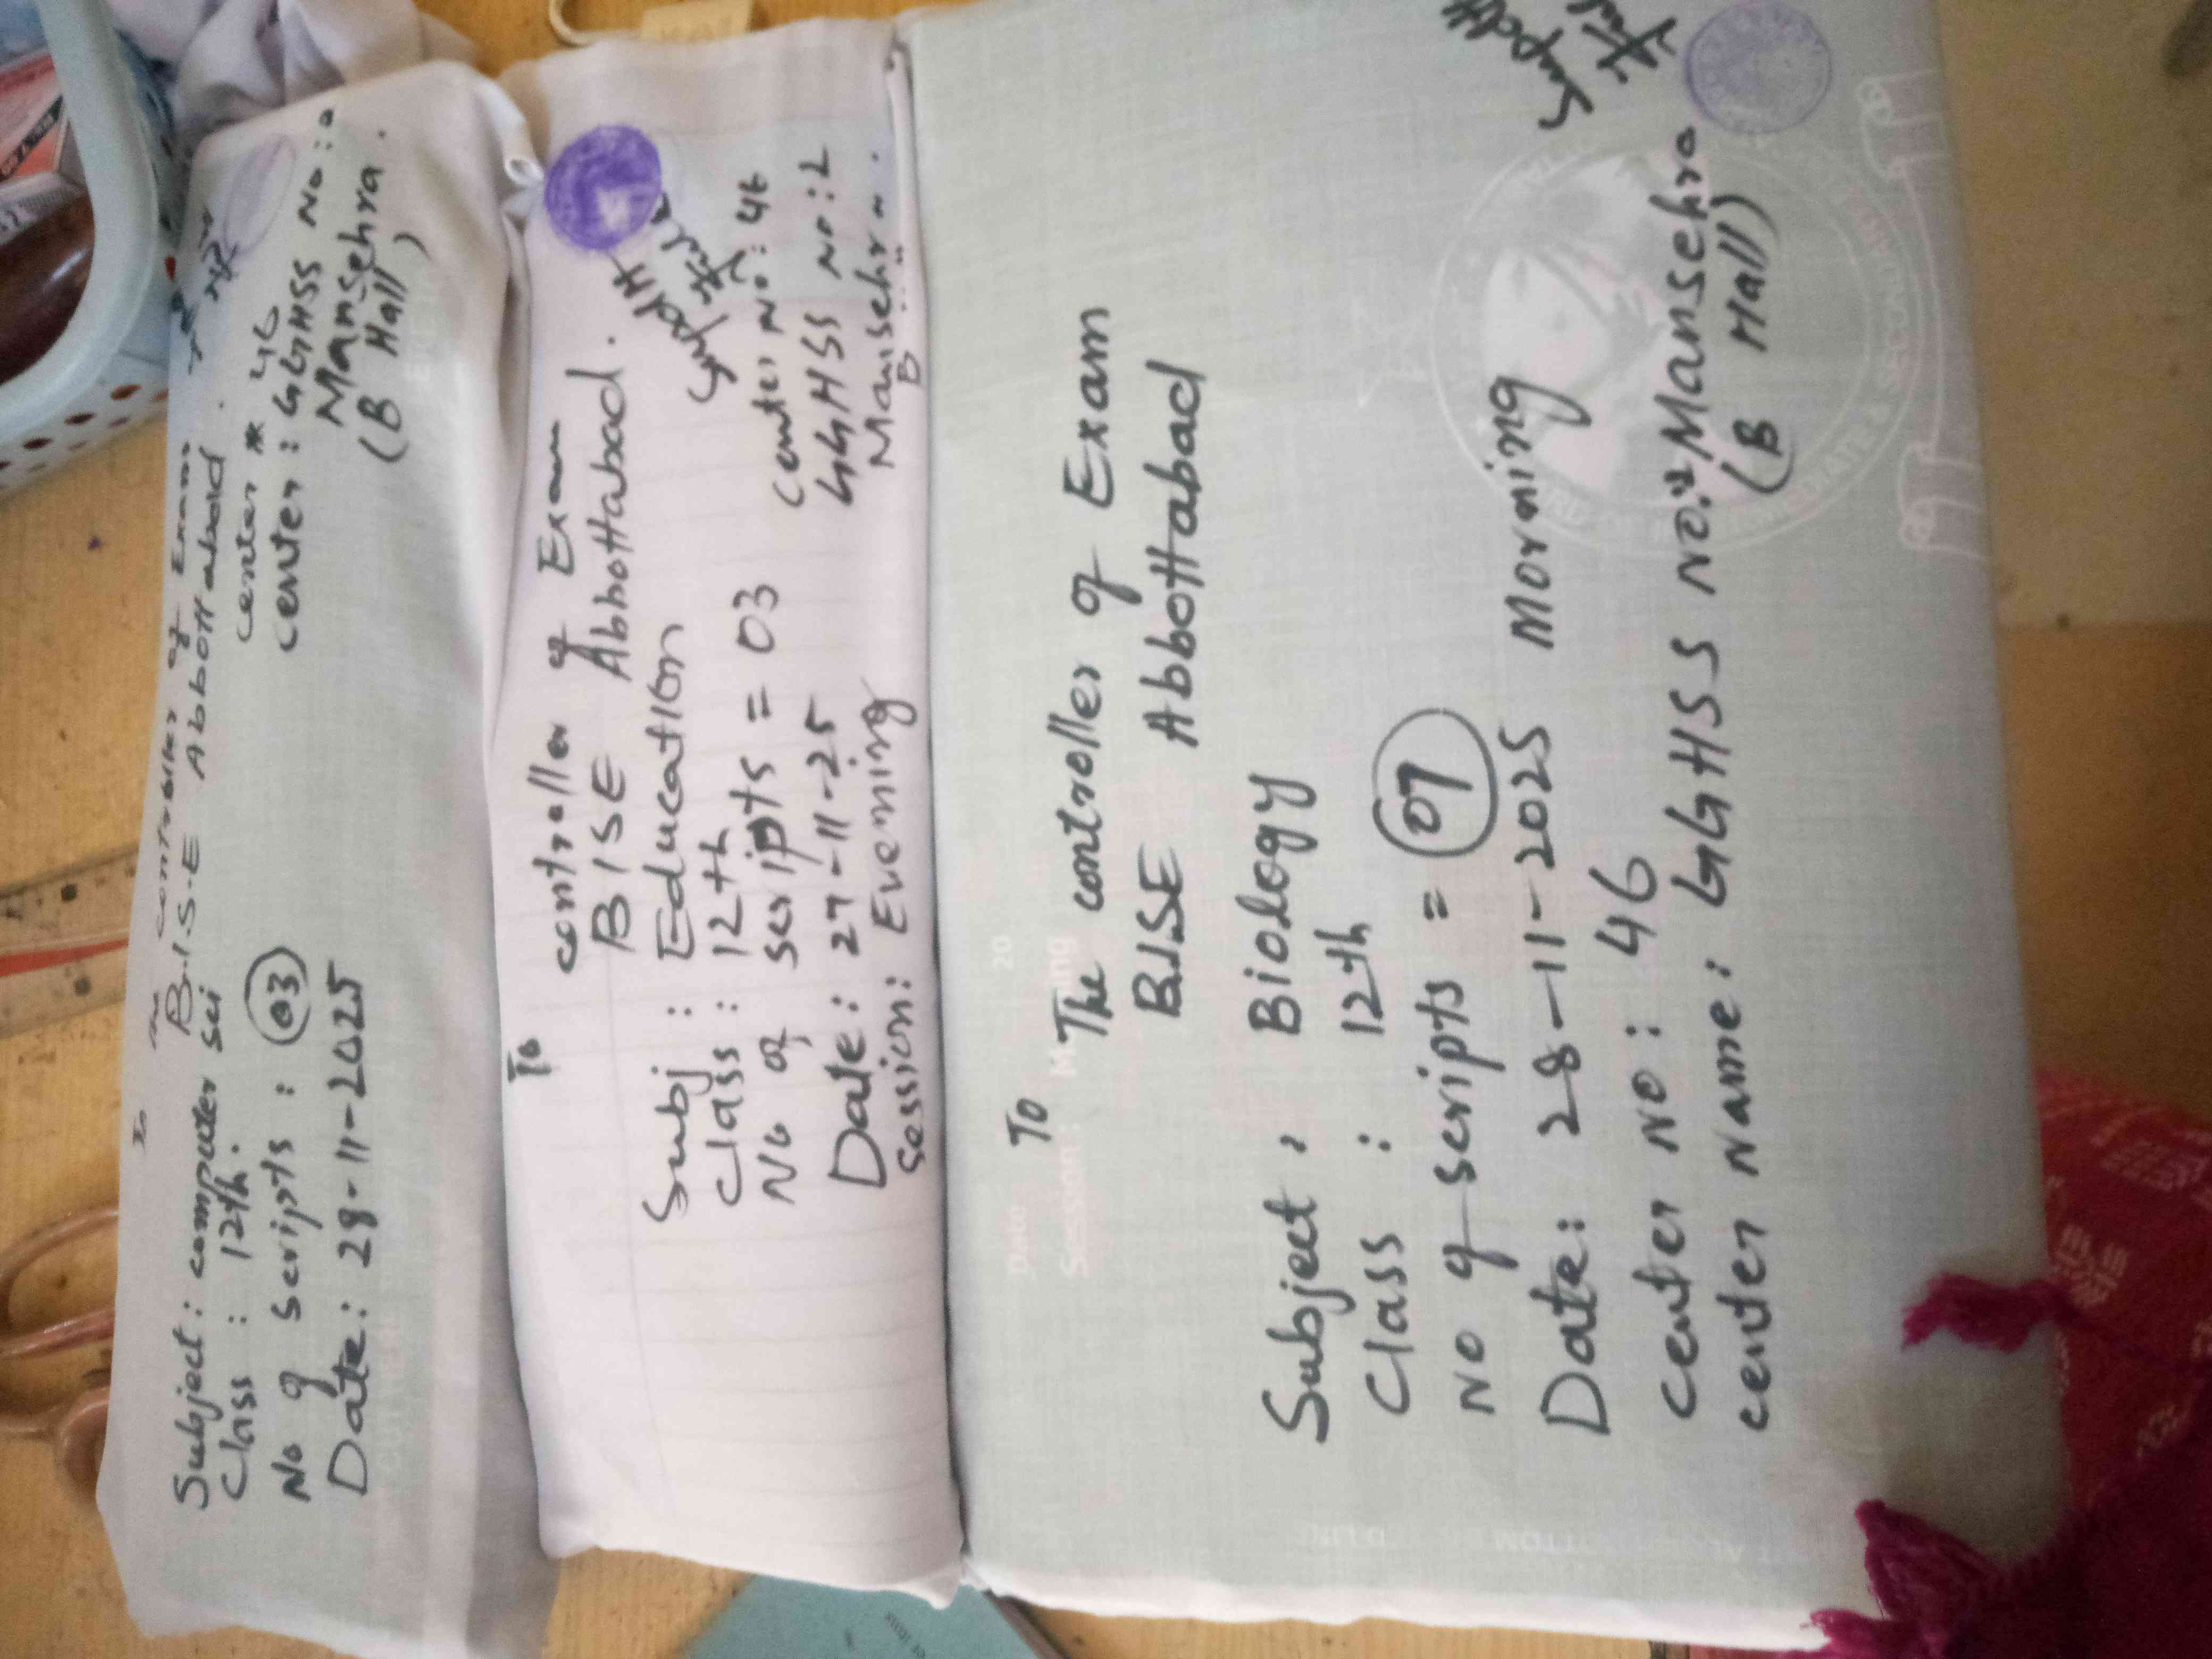 To
The controller of Exam
B.I.S.E Abbottabad.
center # 46
Subject: computer sci
center: GGHSS No:2
Class : 12th.
Mansehra.
No of scripts : 03
(B Hall)
Date: 28-11-2025
To
controller of Exam
BISE Abbottabad.
Subj : Education
Class : 12th
Supdtt
No of scripts = 03
center No: 46
Date: 27-11-25
GGHSS No:2
Session: Evening
Mansehra.
B
To
The controller of Exam
BISE Abbottabad
Subject : Biology
Class : 12th
No of scripts = 07
Date: 28-11-2025 Morning
Supdtt
center No: 46
center Name: GGHSS No:2 Mansehra
(B Hall)